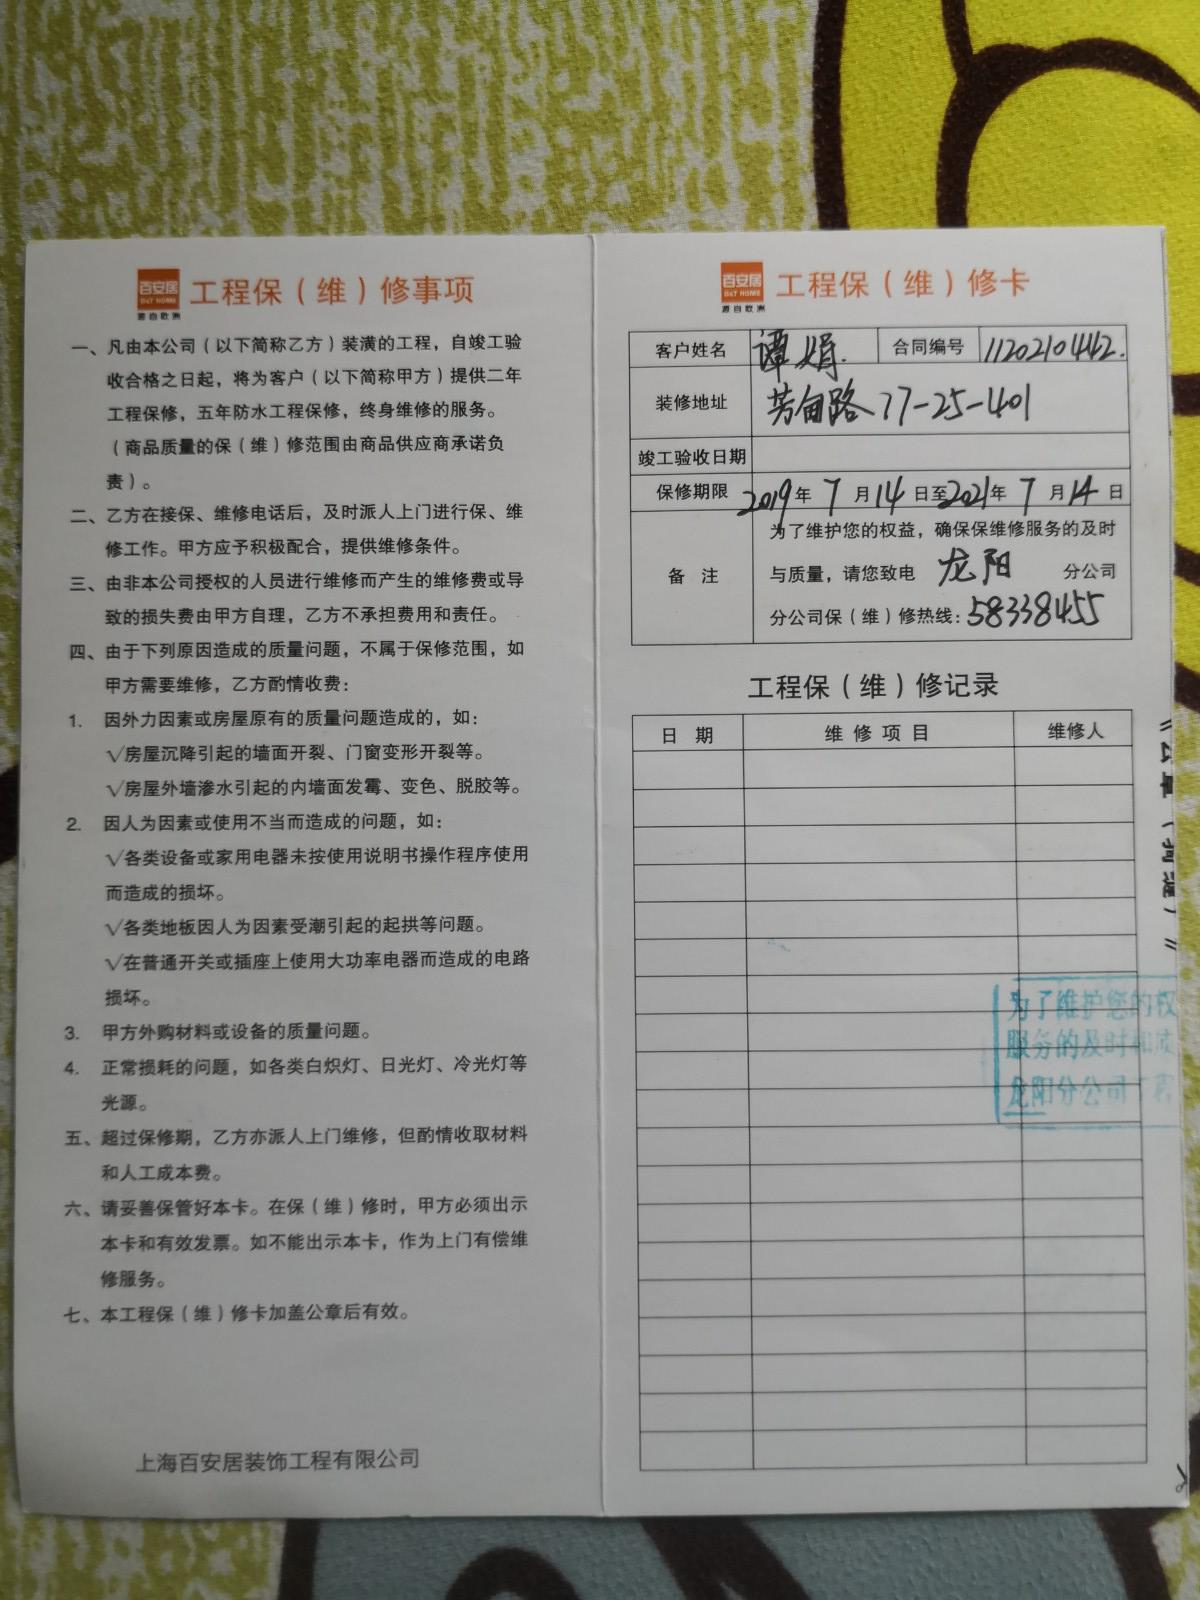 百安居
B&T HOME
源自欧洲
工程保（维）修事项
一、凡由本公司（以下简称乙方）装潢的工程，自竣工验
收合格之日起，将为客户（以下简称甲方）提供二年
工程保修，五年防水工程保修，终身维修的服务。
（商品质量的保（维）修范围由商品供应商承诺负
责）。
二、乙方在接保、维修电话后，及时派人上门进行保、维
修工作。甲方应予积极配合，提供维修条件。
三、由非本公司授权的人员进行维修而产生的维修费或导
致的损失费由甲方自理，乙方不承担费用和责任。
四、由于下列原因造成的质量问题，不属于保修范围，如
甲方需要维修，乙方酌情收费：
1. 因外力因素或房屋原有的质量问题造成的，如：
√房屋沉降引起的墙面开裂、门窗变形开裂等。
√房屋外墙渗水引起的内墙面发霉、变色、脱胶等。
2. 因人为因素或使用不当而造成的问题，如：
√各类设备或家用电器未按使用说明书操作程序使用
而造成的损坏。
√各类地板因人为因素受潮引起的起拱等问题。
√在普通开关或插座上使用大功率电器而造成的电路
损坏。
3. 甲方外购材料或设备的质量问题。
4. 正常损耗的问题，如各类白炽灯、日光灯、冷光灯等
光源。
五、超过保修期，乙方亦派人上门维修，但酌情收取材料
和人工成本费。
六、请妥善保管好本卡。在保（维）修时，甲方必须出示
本卡和有效发票。如不能出示本卡，作为上门有偿维
修服务。
七、本工程保（维）修卡加盖公章后有效。
上海百安居装饰工程有限公司
百安居
B&T HOME
源自欧洲
工程保（维）修卡
客户姓名 谭娟. 合同编号 1120210442.
装修地址 芳甸路 77-25-401
竣工验收日期
保修期限 2019年7月14日至2021年7月14日
备 注 为了维护您的权益，确保保维修服务的及时
与质量，请您致电 龙阳 分公司
分公司保（维）修热线：58338455
工程保（维）修记录
日 期 维 修 项 目 维修人
为了维护您的权
服务的及时和质
龙阳分公司工程